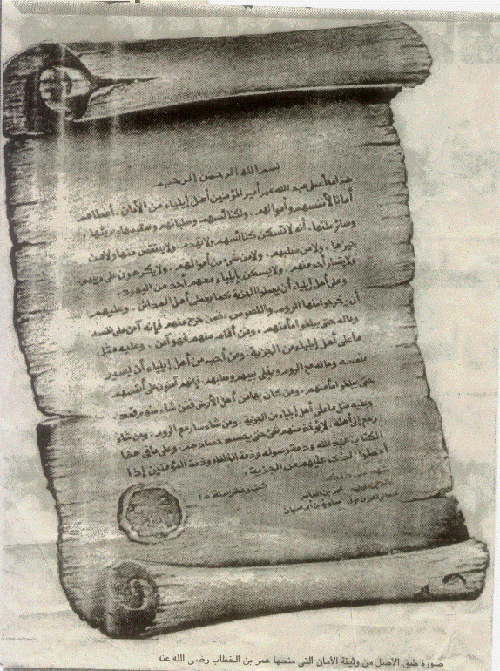 بسم الله الرحمن الرحيم
هذا ما أعطى عبد الله عمر أمير المؤمنين أهل إيلياء من الأمان. أعطاهم
أمانا لأنفسهم وأموالهم، ولكنائسهم وصلبانهم وسقيمها وبريئها
وسائر ملتها. أنه لا تسكن كنائسهم ولا تهدم، ولا ينتقص منها ولا من
حيزها، ولا من صليبهم، ولا من شئ من أموالهم، ولا يكرهون على دينهم
ولا يضار أحد منهم، ولا يسكن بإيلياء معهم أحد من اليهود
وعلى أهل إيلياء أن يعطوا الجزية كما يعطى أهل المدائن، وعليهم
أن يخرجوا منها الروم واللصوص، فمن خرج منهم فإنه آمن على نفسه
وماله حتى يبلغوا مأمنهم، ومن أقام منهم فهو آمن، وعليه مثل
ما على أهل إيلياء من الجزية. ومن أحب من أهل إيلياء أن يسير
بنفسه وماله مع الروم ويخلى بيعهم وصلبهم، فإنهم آمنون على أنفسهم
حتى يبلغوا مأمنهم، ومن كان بها من أهل الأرض فمن شاء منهم قعد
وعليه مثل ما على أهل إيلياء من الجزية، ومن شاء سار مع الروم، ومن شاء
رجع إلى أهله، لا يؤخذ منهم شئ حتى يحصد حصادهم. وعلى ما في هذا
الكتاب عهد الله وذمة رسوله وذمة الخلفاء وذمة المؤمنين إذا
أعطوا الذي عليهم من الجزية.
كتب وحضر سنة ١٥
عمرو بن العاص
ومعاوية بن أبي سفيان
صورة طبق الأصل من وثيقة الأمان التي منحها عمر بن الخطاب رضى الله عنه